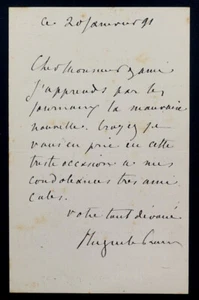 ce 20 janvier 91
Cher Monsieur & ami
J'apprends par les
journaux la mauvaise
nouvelle. Croyez je
vous en prie en cette
triste occasion à mes
condoléances très ami
cales.
Votre tout dévoué
Hugues Le Roux